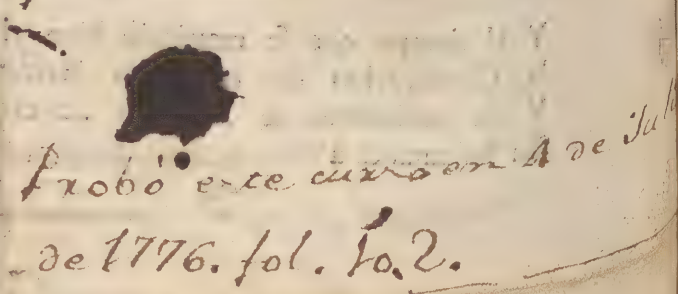 Probó este curso en 4 de Juli
de 1776. fol. 10. 2.